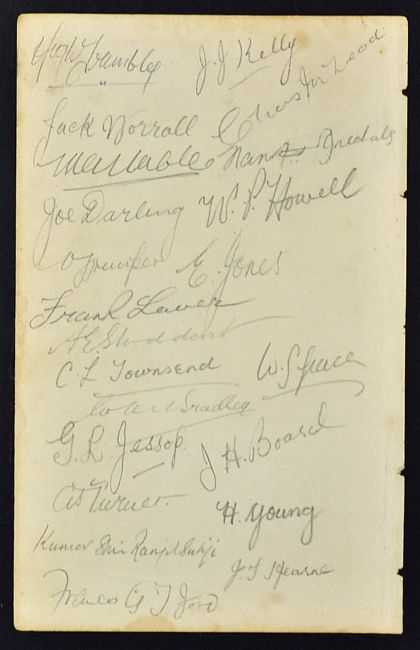 Hugh Trumble J J Kelly
Jack Worrall Chas McLeod
M A Noble Frank Iredale
Joe Darling W. P. Howell
V Trumper E. Jones
Frank Laver
A E Stoddart
C L Townsend W G Grace
W M Bradley
G. L. Jessop. J H Board
A J Turner
H. Young
Kumar Shri Ranjitsinhji
J. T. Hearne
Francis G J Ford